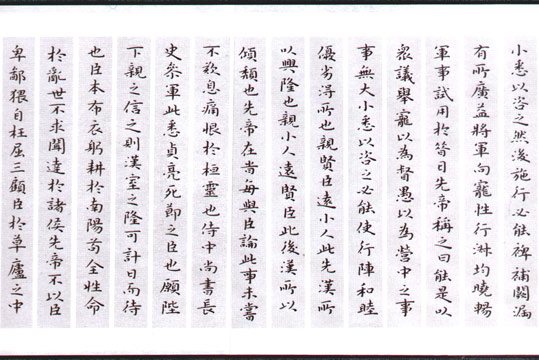 小悉以咨之然後施行必能裨補闕漏
有所廣益將軍向寵性行淋均曉暢
軍事試用於昔日先帝稱之曰能是以
眾議舉寵以為督愚以為營中之事
事無大小悉以咨之必能使行陣和睦
優劣得所也親賢臣遠小人此先漢所
以興隆也親小人遠賢臣此後漢所以
傾頹也先帝在旹每與臣論此事未嘗
不歎息痛恨於桓靈也侍中尚書長
史參軍此悉貞亮死節之臣也願陛
下親之信之則漢室之隆可計日而待
也臣本布衣躬耕於南陽苟全性命
於亂世不求聞達於諸侯先帝不以臣
卑鄙猥自枉屈三顧臣於草廬之中